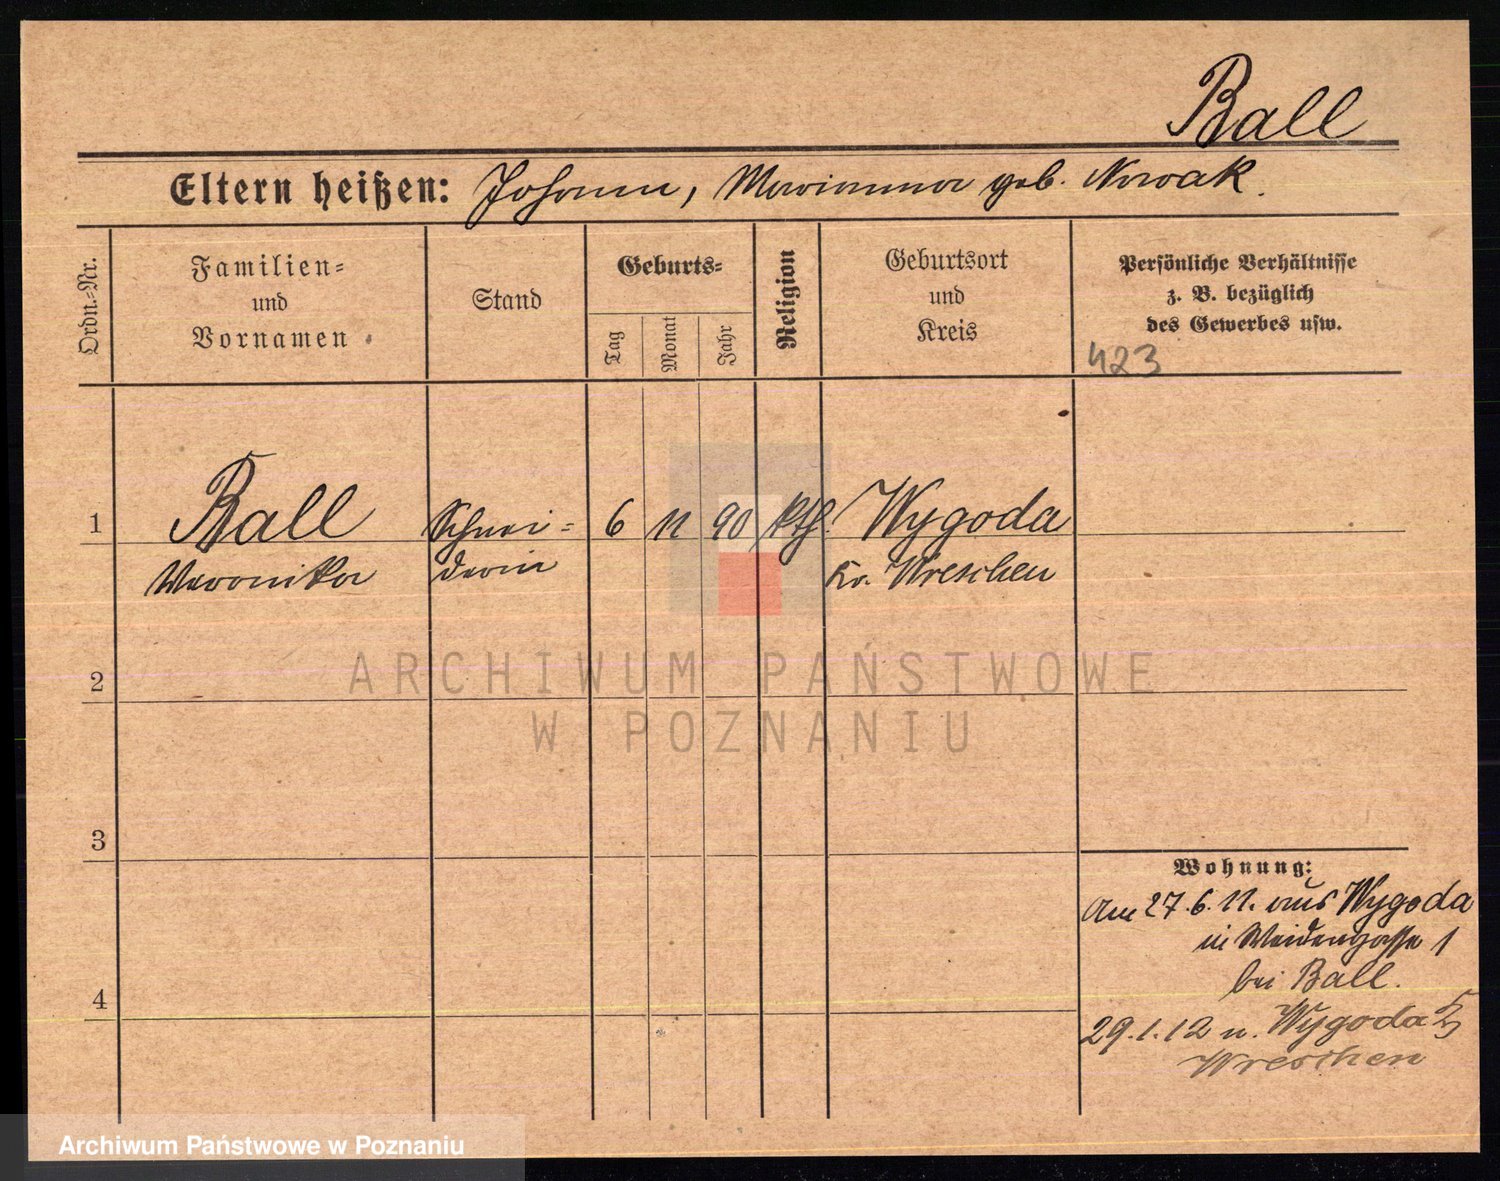 Ball
Eltern heißen: Johann, Marianna geb. Nowak.
Ordn.-Nr.
Familien-
und
Vornamen
Stand
Geburts-
Tag
Monat
Jahr
Religion
Geburtsort
und
Kreis
Persönliche Verhältnisse
z. B. bezüglich
des Gewerbes usw.
423
1 Ball Schnei- 6 11 90 kth. Wygoda
Weronika derin Kr. Wreschen
2
3
4
Wohnung:
Am 27.6.11. aus Wygoda
in Weidengasse 1
bei Ball.
29.1.12 n. Wygoda
Wreschen
ARCHIWUM PAŃSTWOWE
W POZNANIU
Archiwum Państwowe w Poznaniu